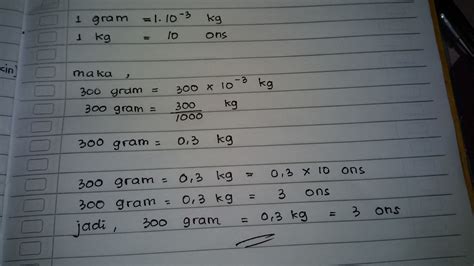 1 gram = 1. 10⁻³ kg
1 kg = 10 ons
maka,
300 gram = 300 × 10⁻³ kg
300 gram = 300/1000 kg
300 gram = 0,3 kg
300 gram = 0,3 kg = 0,3 × 10 ons
300 gram = 0,3 kg = 3 ons
jadi, 300 gram = 0,3 kg = 3 ons